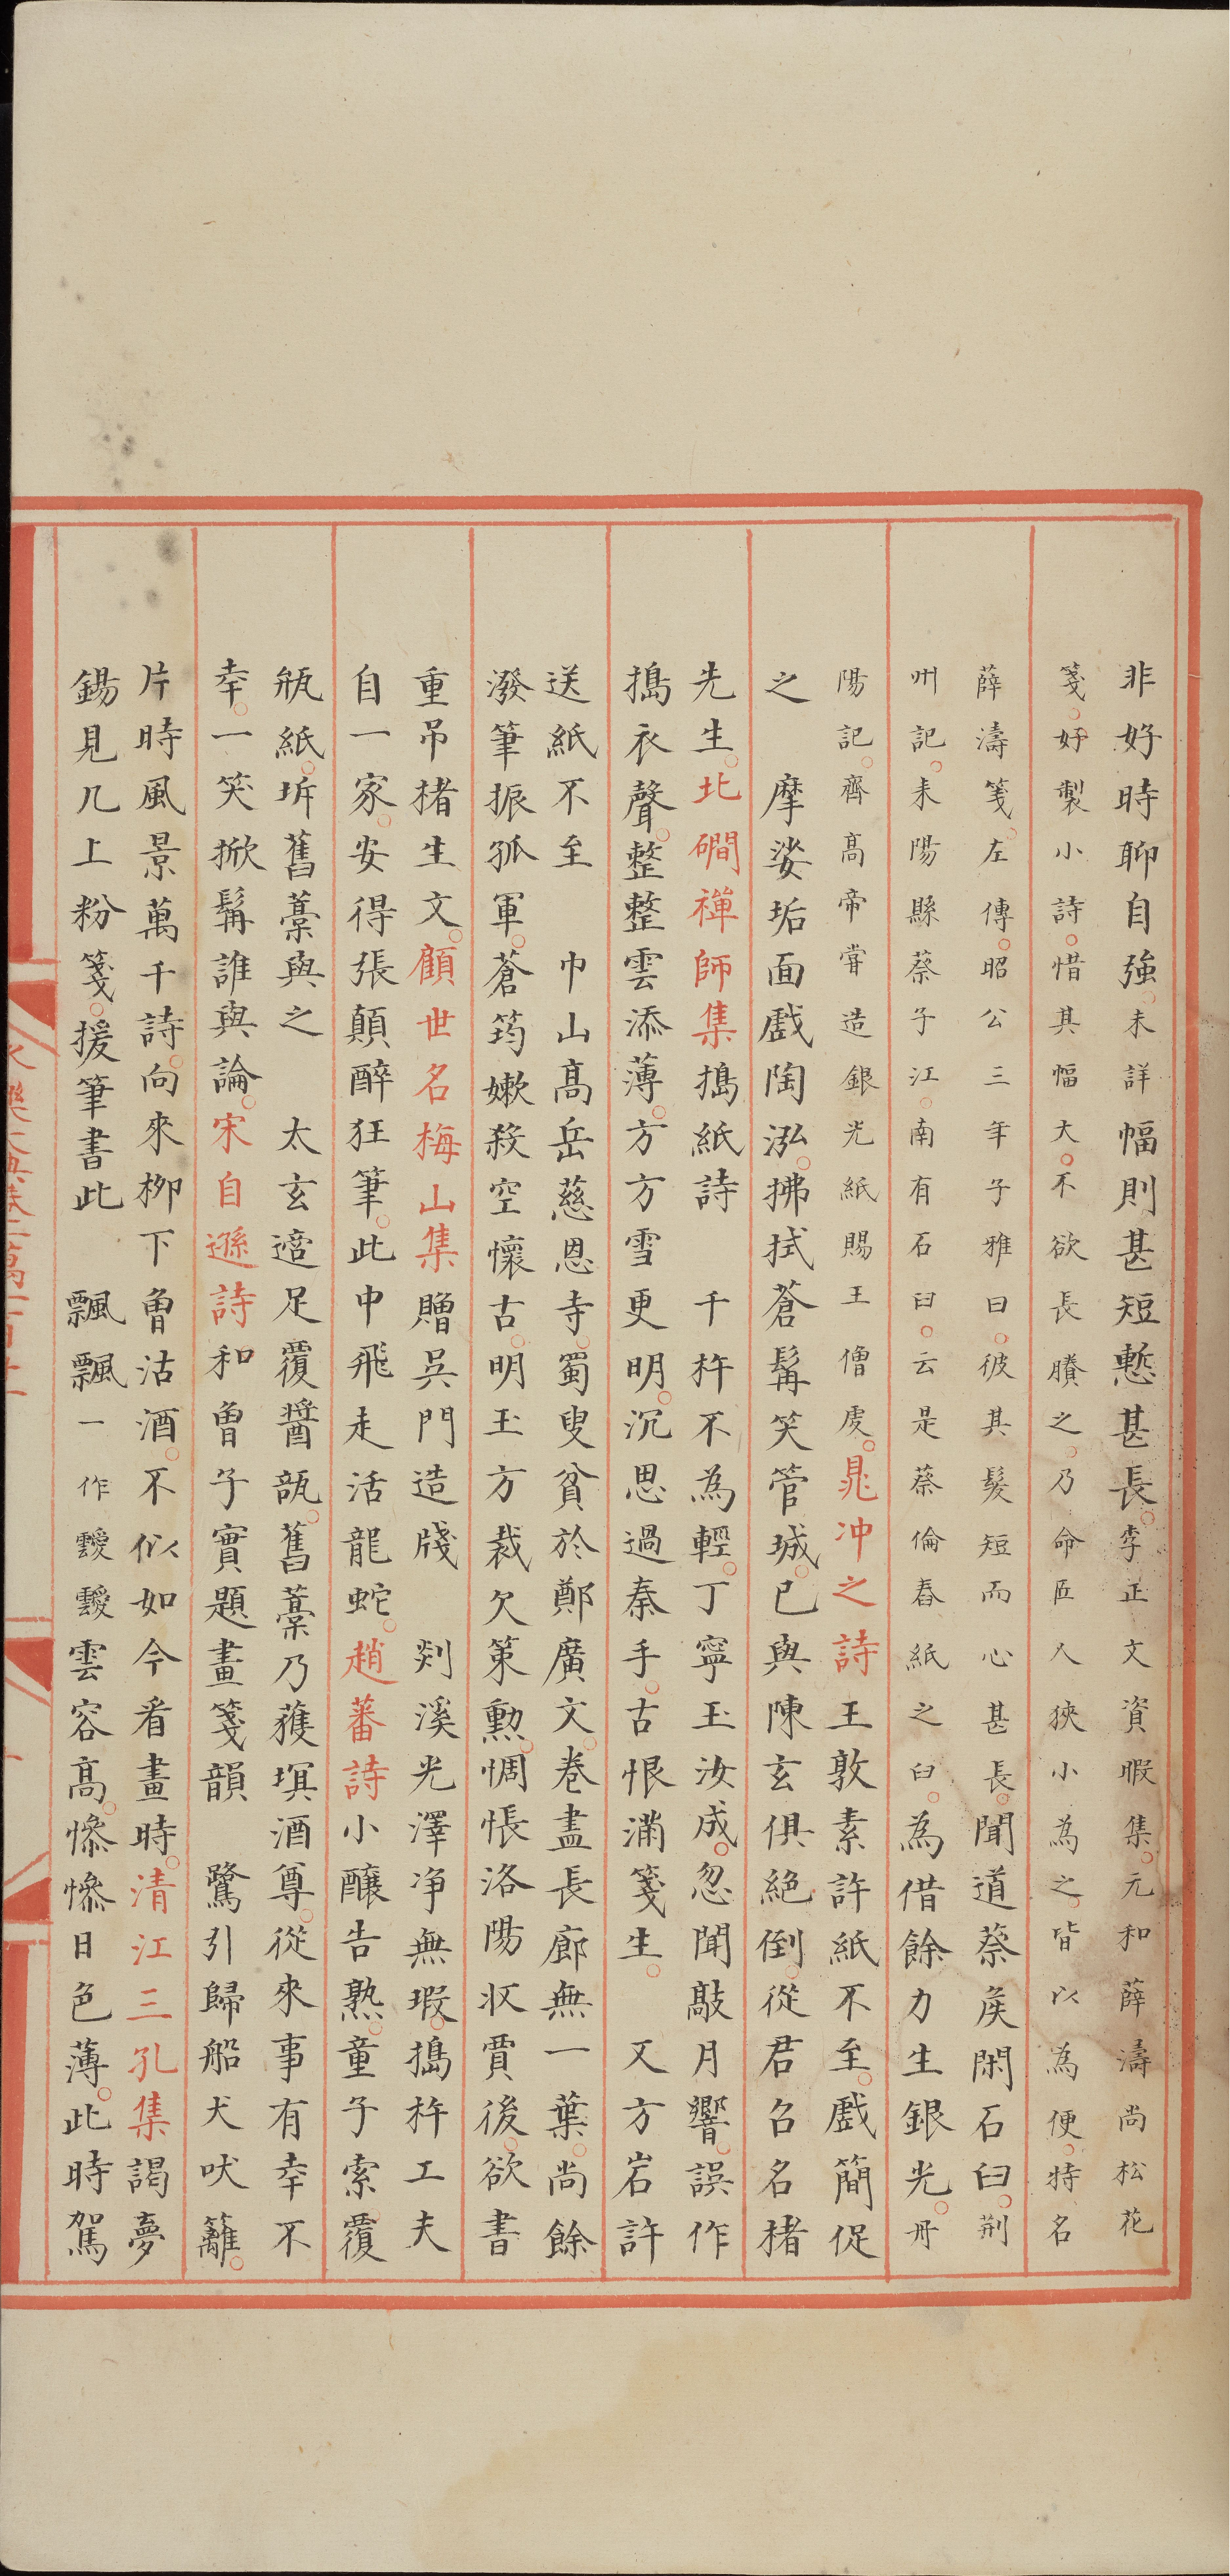 非好時聊自強。未詳幅則甚短慙甚長。李正文資暇集。元和薛濤尚松花
箋。好製小詩。惜其幅大。不欲長賸之。乃命匠人狹小為之。皆以為便。特名
薛濤箋。左傳。昭公三年子雅曰。彼其髮短而心甚長。聞道蔡矦閑石臼。荆
州記。耒陽縣蔡子江。南有石臼。云是蔡倫舂紙之臼。為借餘力生銀光。丹
陽記。齊高帝甞造銀光紙賜王僧虔。晁冲之詩王敦素許紙不至。戲簡促
之　摩娑垢面戲陶泓。拂拭蒼髯笑管城。已與陳玄俱絶倒。從君召名楮
先生。北磵禪師集搗紙詩　千杵不為輕。丁寧玉汝成。忽聞敲月響。誤作
搗衣聲。整整雲添薄。方方雪更明。沉思過秦手。古恨滿箋生。　又方岩許
送紙不至　巾山髙岳慈恩寺。蜀叟貧於鄭廣文。卷盡長廊無一葉。尚餘
潑筆振孤軍。蒼筠嫰殺空懷古。明玉方裁欠策勲。惆悵洛陽収賈後。欲書
重吊楮生文。顧世名梅山集贈吳門造牋　剡溪光澤净無瑕。搗杵工夫
自一家。安得張顛醉狂筆。此中飛走活龍蛇。趙蕃詩小釀告熟。童子索覆
瓶紙。坼舊藁與之　太玄適足覆醬瓿。舊藁乃蒦塓酒尊。從來事有幸不
幸。一笑掀髯誰與論。宋自遜詩和曾子實題畫箋韻　鷺引歸船犬吠籬。
片時風景萬千詩。向來栁下曾沽酒。不似如今看畫時。清江三孔集謁夢
錫見几上粉箋。援筆書此　飄飄一作靉靉雲容髙。慘慘日色薄。此時駕